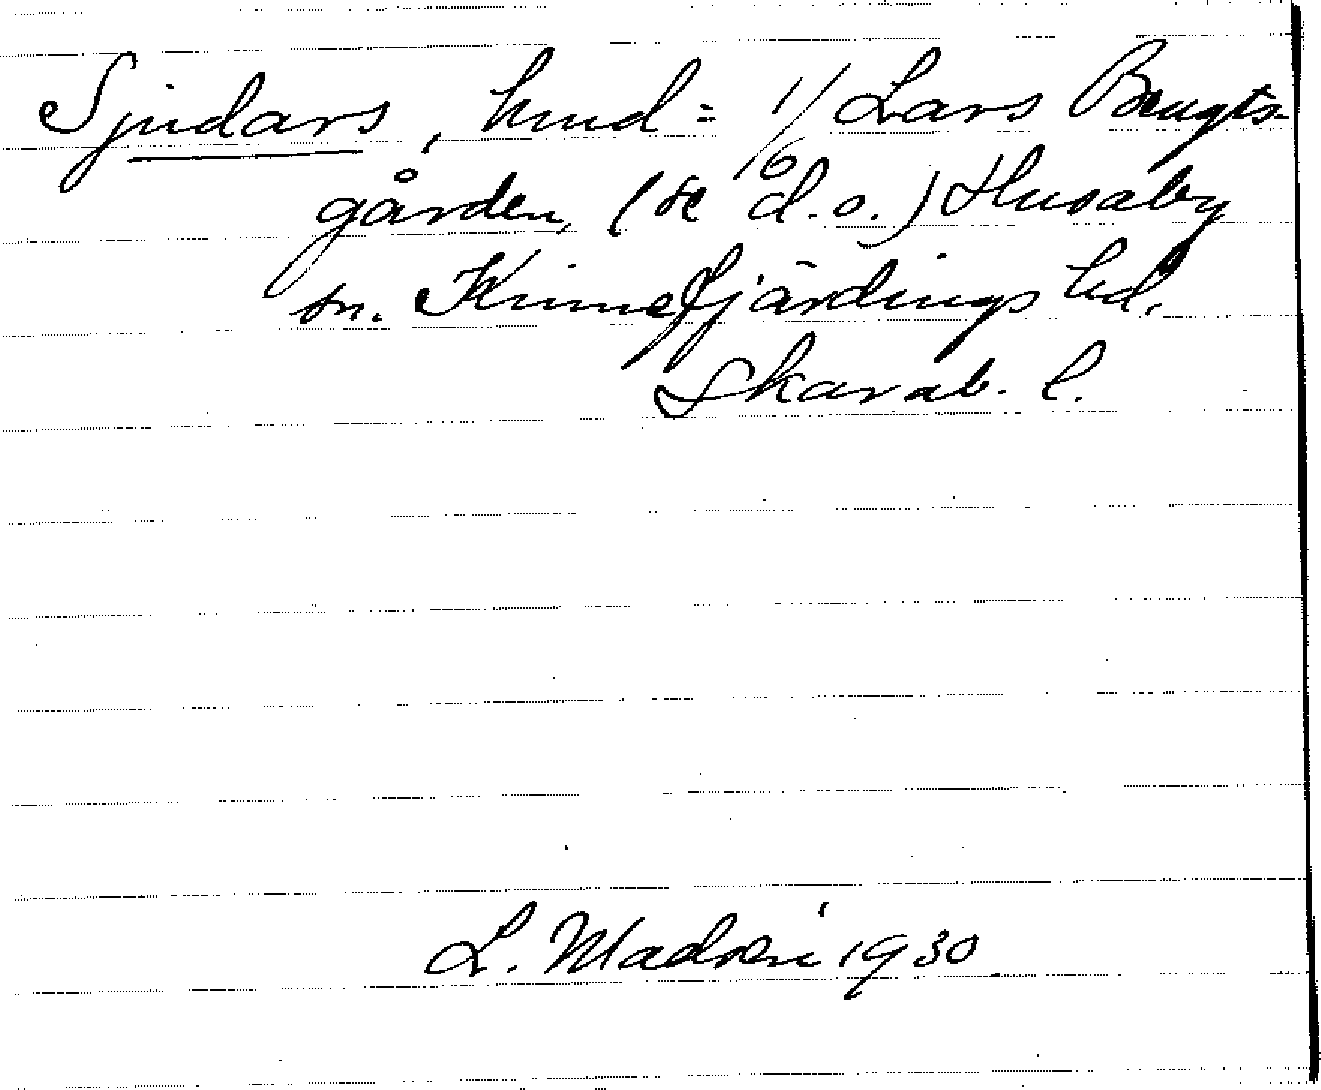 Sjudars, hmd = 1/6 Lars Bengts-
gården, (se d.o.) Husaby
sn. Kinnefjärdings hd.
Skarab. l.
L. Madsén 1930